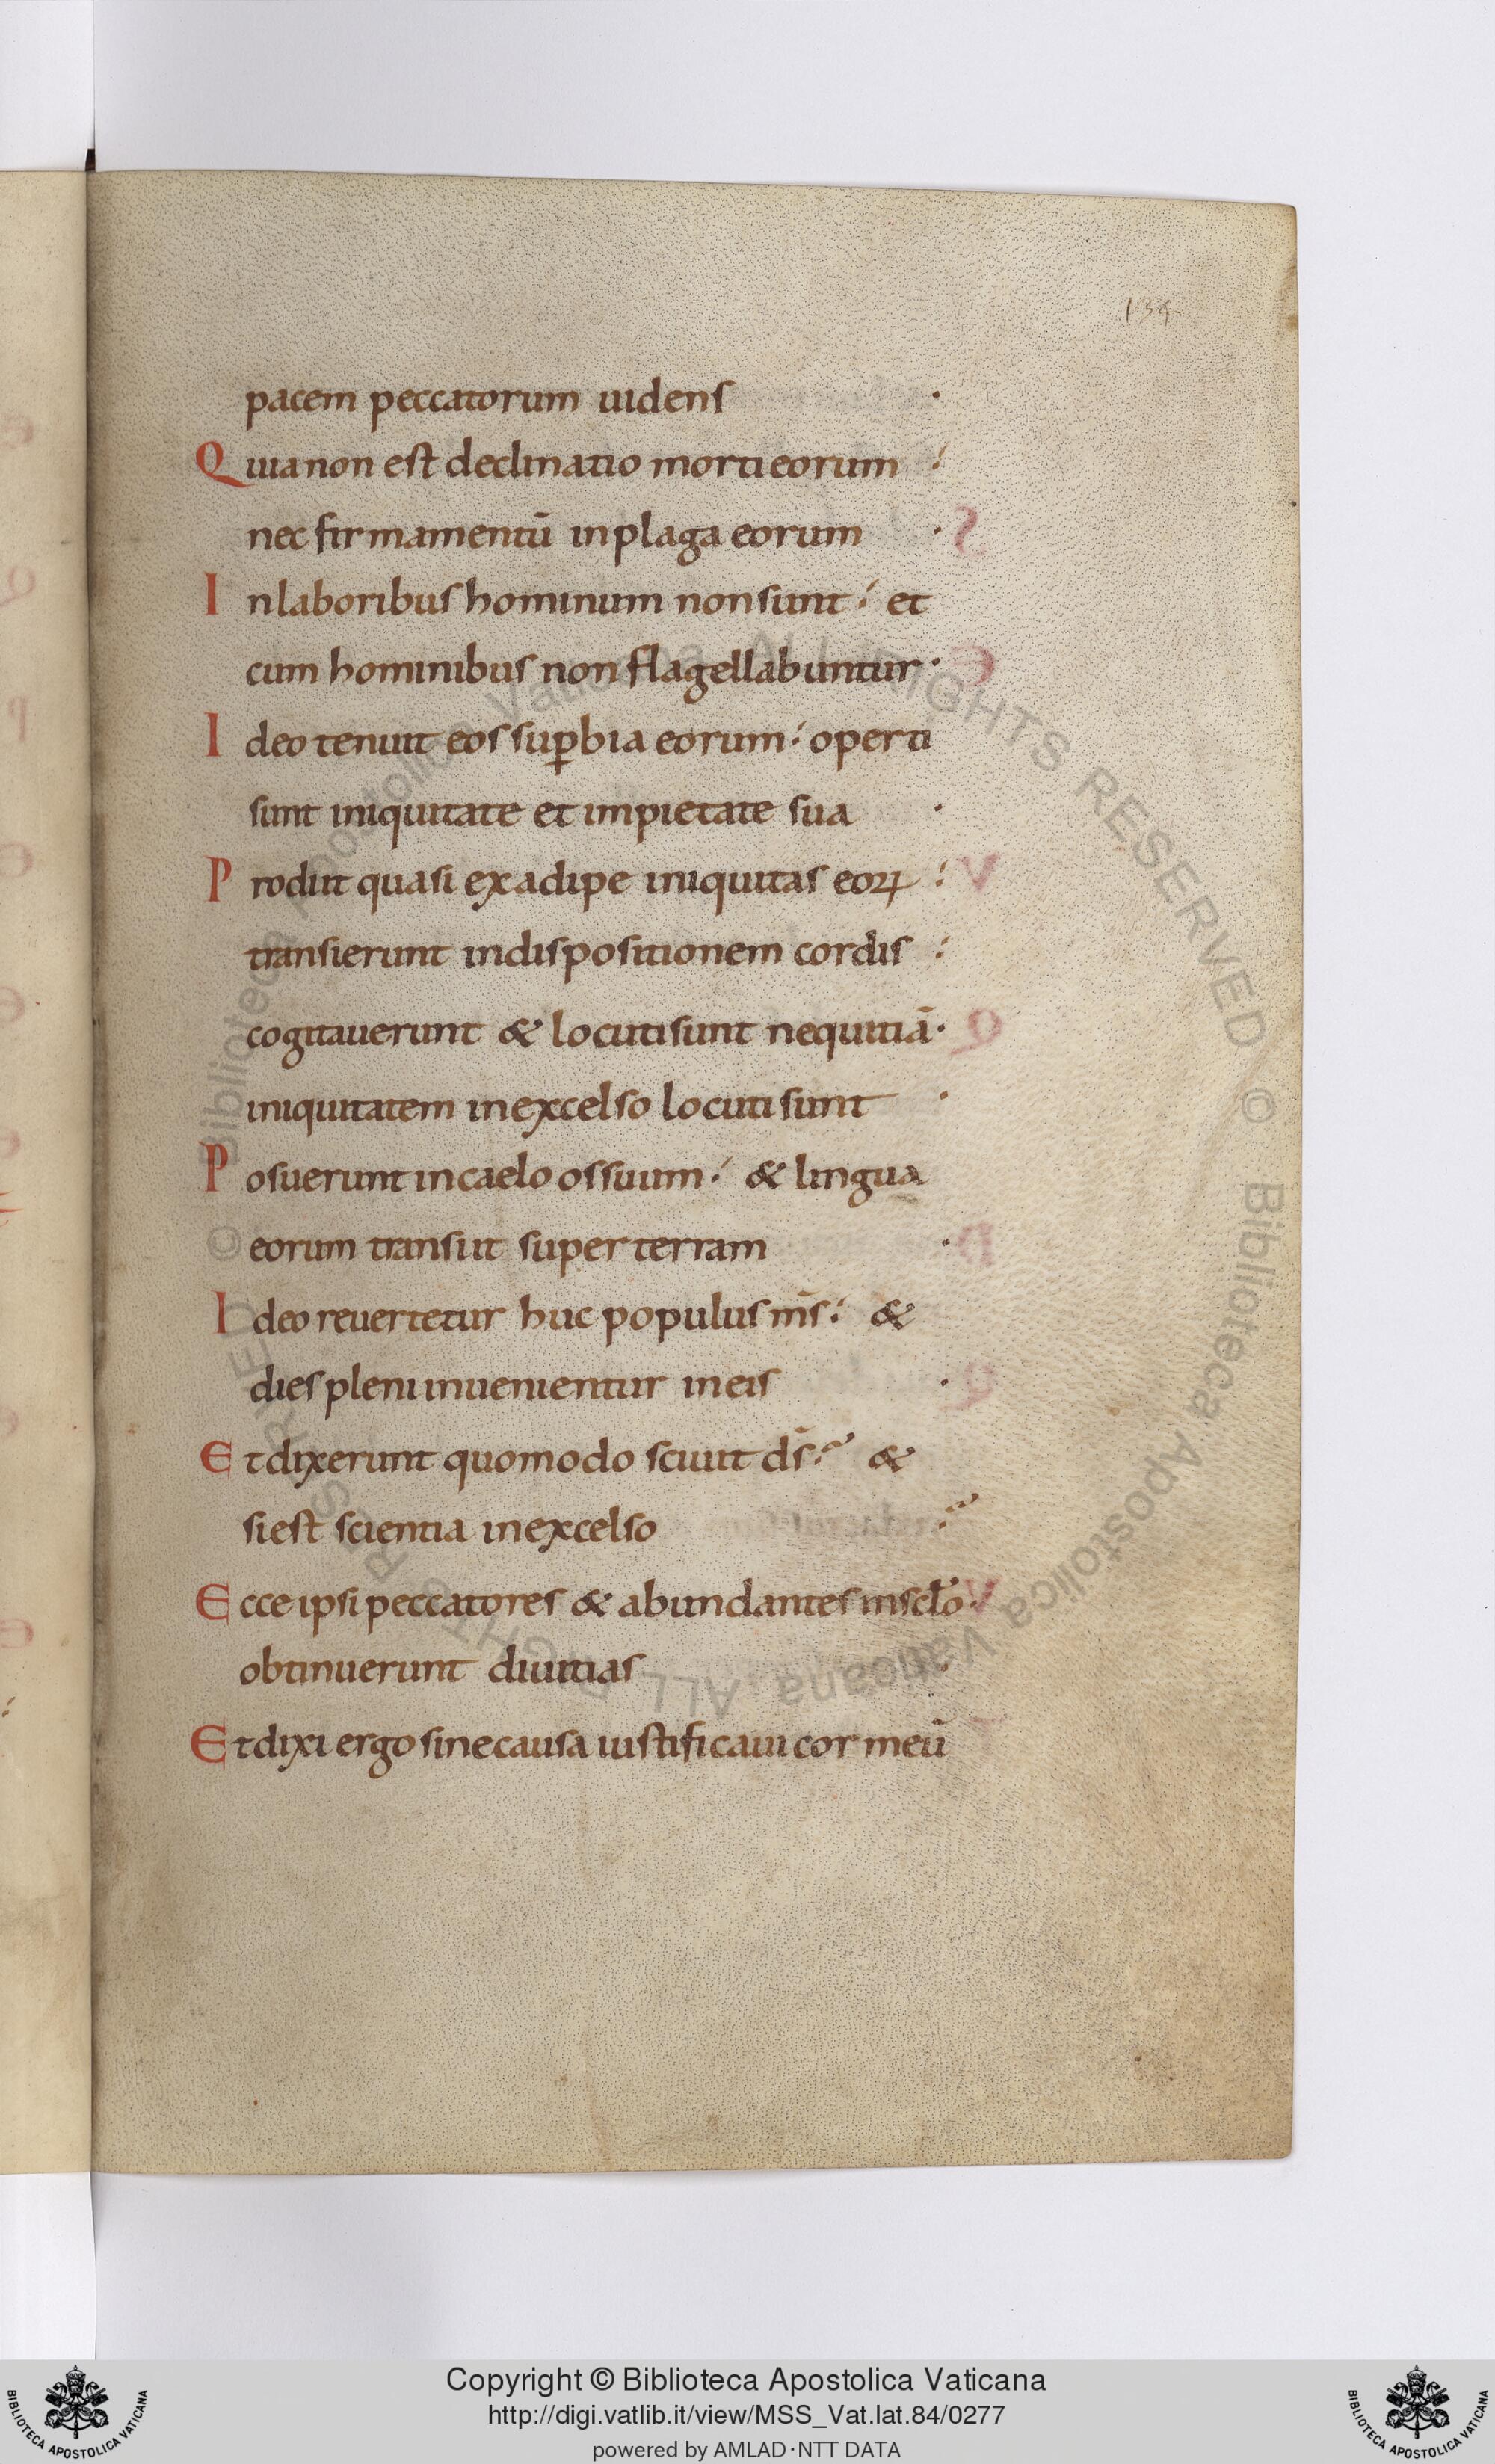 134
pacem peccatorum uidens ·
Quia non est declinatio morti eorum :
nec firmamentū in plaga eorum ·
In laboribus hominum non sunt : et
cum hominibus non flagellabuntur ·
Ideo tenuit eos suꝑbia eorum : operti
sunt iniquitate et impietate sua ·
Prodiit quasi ex adipe iniquitas eoꝝ :
transierunt in dispositionem cordis :
cogitauerunt & locuti sunt nequitiā ·
iniquitatem in excelso locuti sunt ·
Posuerunt in caelo os suum : & lingua
eorum transiit super terram ·
Ideo reuertetur huc populus m̄s : &
dies pleni inuenientur in eis ·
Et dixerunt quomodo sciuit d̄s : &
si est scientia in excelso :
Ecce ipsi peccatores & abundantes in scl̄o :
obtinuerunt diuitias ·
Et dixi ergo sine causa iustificaui cor meū
© Biblioteca Apostolica Vaticana, ALL RIGHTS RESERVED © Biblioteca Apostolica Vaticana, ALL RIGHTS RESERVED
Copyright © Biblioteca Apostolica Vaticana
http://digi.vatlib.it/view/MSS_Vat.lat.84/0277
powered by AMLAD·NTT DATA
BIBLIOTECA APOSTOLICA VATICANA
BIBLIOTECA APOSTOLICA VATICANA